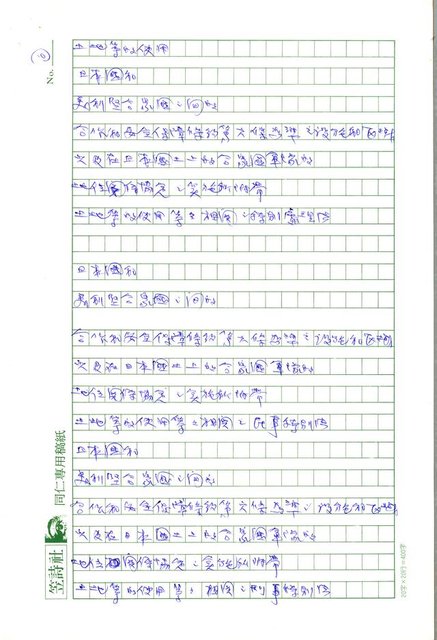 土地等的使用
日本國和
美利堅合眾國之间的
合作和安全保障條約第六條為準之設施和区域
以及在日本國土上的合眾國軍隊的
地位國係協定之实施所帶
土地等的使用等之相関之特別
日本國和
美利堅合眾國之间的
合作和安全保障條約第六條為準之設施和区域
以及在日本國土上的合眾國軍隊的
地位関係協定之实施所帶
土地等的使用等之相関之民事特別法
日本國和
美利堅合眾國之间的
合作和安全保障條約第六條為準之設施和区域
以及在日本國土上的合眾國軍隊的
地位関係協定之实施所帶
土地等的使用等之相関之刑事特別法
No.
笠詩社 同仁專用稿紙
20字×20行=400字